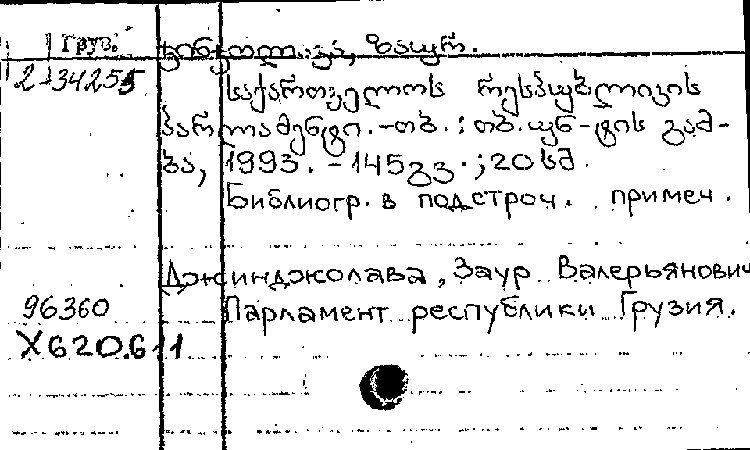 Груз. ჯინჯოლავა, ზაურ.
2-34255 საქართველოს რესპუბლიკის
პარლამენტი. -თბ. : თბ. უნ-ტის გამ-
ბა, 1993. - 145გვ. ; 20სმ.
Библиогр. в подстроч. примеч.
Джинджолава, Заур Валерьянович
96360 Парламент республики Грузия.
Х620.611